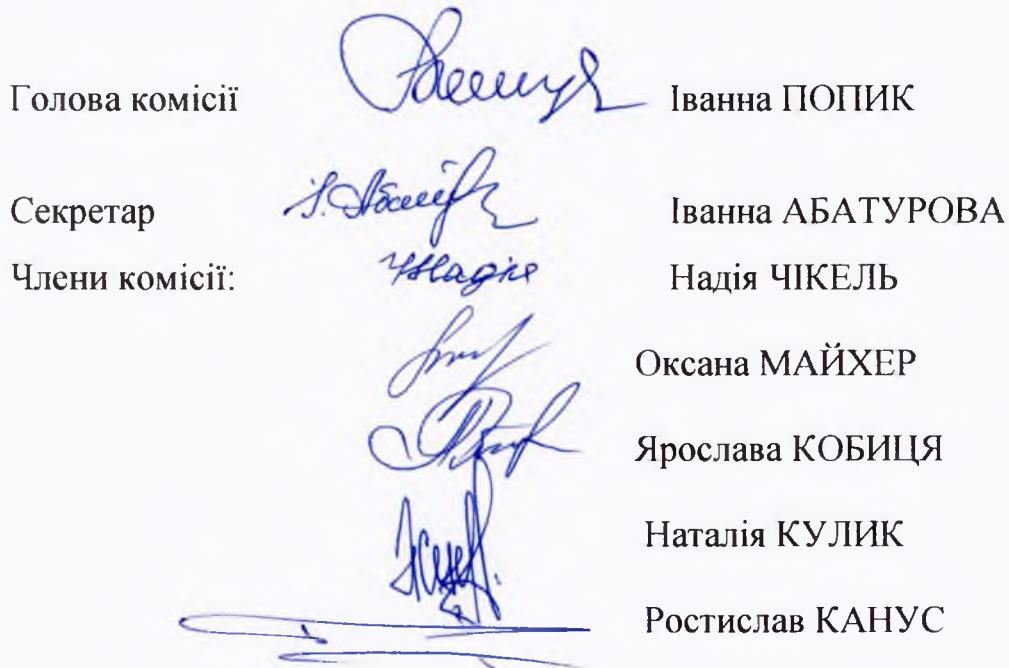 Голова комісії Іванна ПОПИК
Секретар Іванна АБАТУРОВА
Члени комісії: Надія ЧІКЕЛЬ
Оксана МАЙХЕР
Ярослава КОБИЦЯ
Наталія КУЛИК
Ростислав КАНУС